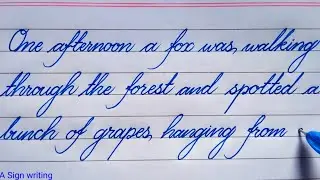 One afternoon a fox was, walking
through the forest and spotted a
bunch of grapes, hanging from
A Sign writing